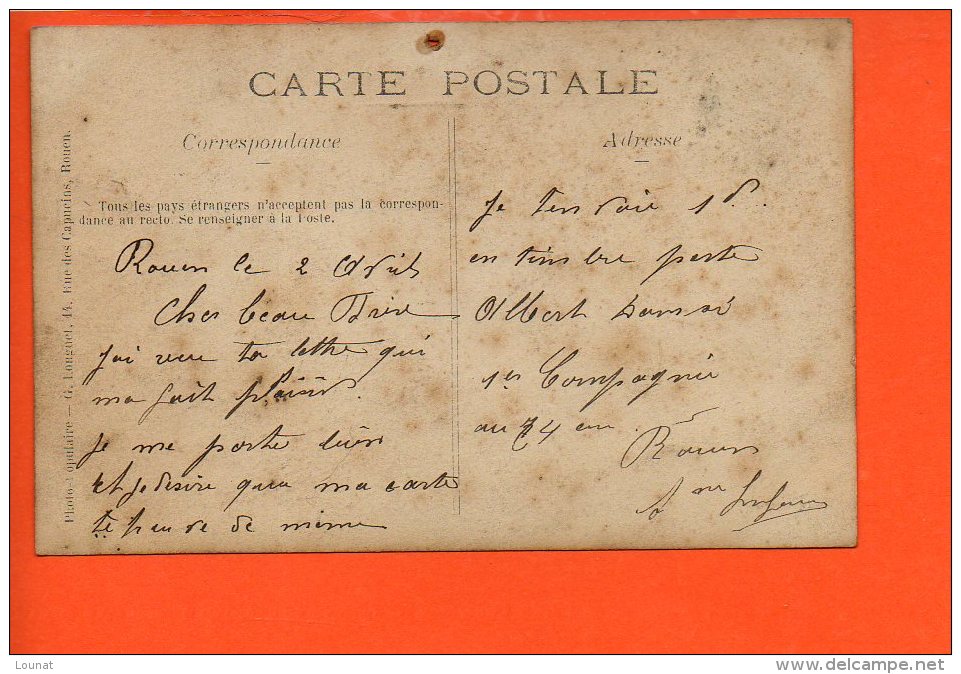 CARTE POSTALE
Correspondance
Tous les pays étrangers n'acceptent pas la correspon-
dance au recto. Se renseigner à la Poste.
Rouen le 2 Avril
Cher beau Frère
J'ai reçu ta lettre qui
ma fait plaisir.
Je me porte bien
et je désire que ma carte
te trouve de même
Adresse
Je t'envoie 1f
en timbre poste
Albert
1er Compagnie
au 74 em
Rouen
Photo-Populaire — G. Longuet, 14, Rue des Capucins, Rouen.
Lounat
www.delcampe.net